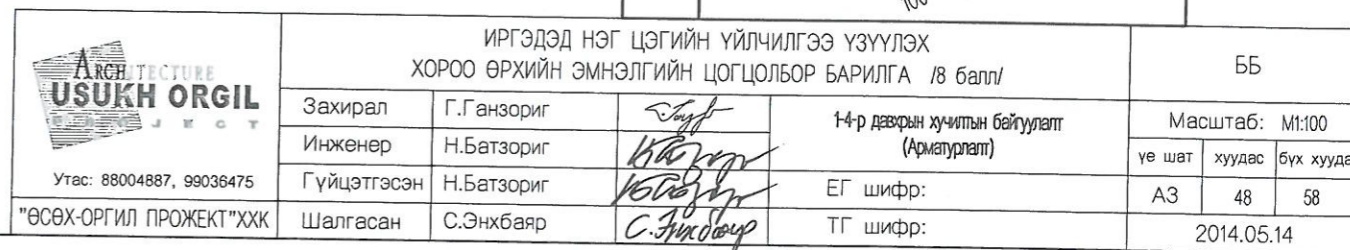 100
ARCHITECTURE
USUKH ORGIL
PROJECT
Утас: 88004887, 99036475
"ӨСӨХ-ОРГИЛ ПРОЖЕКТ"ХХК
ИРГЭДЭД НЭГ ЦЭГИЙН ҮЙЛЧИЛГЭЭ ҮЗҮҮЛЭХ
ХОРОО ӨРХИЙН ЭМНЭЛГИЙН ЦОГЦОЛБОР БАРИЛГА /8 балл/
Захирал Г.Ганзориг
Инженер Н.Батзориг
Гүйцэтгэсэн Н.Батзориг
Шалгасан С.Энхбаяр С.Энхбаяр
1-4-р давхрын хучилтын байгуулалт
(Арматурлалт)
ЕГ шифр:
ТГ шифр:
ББ
Масштаб: М1:100
үе шат хуудас бүх хууда
А3 48 58
2014.05.14